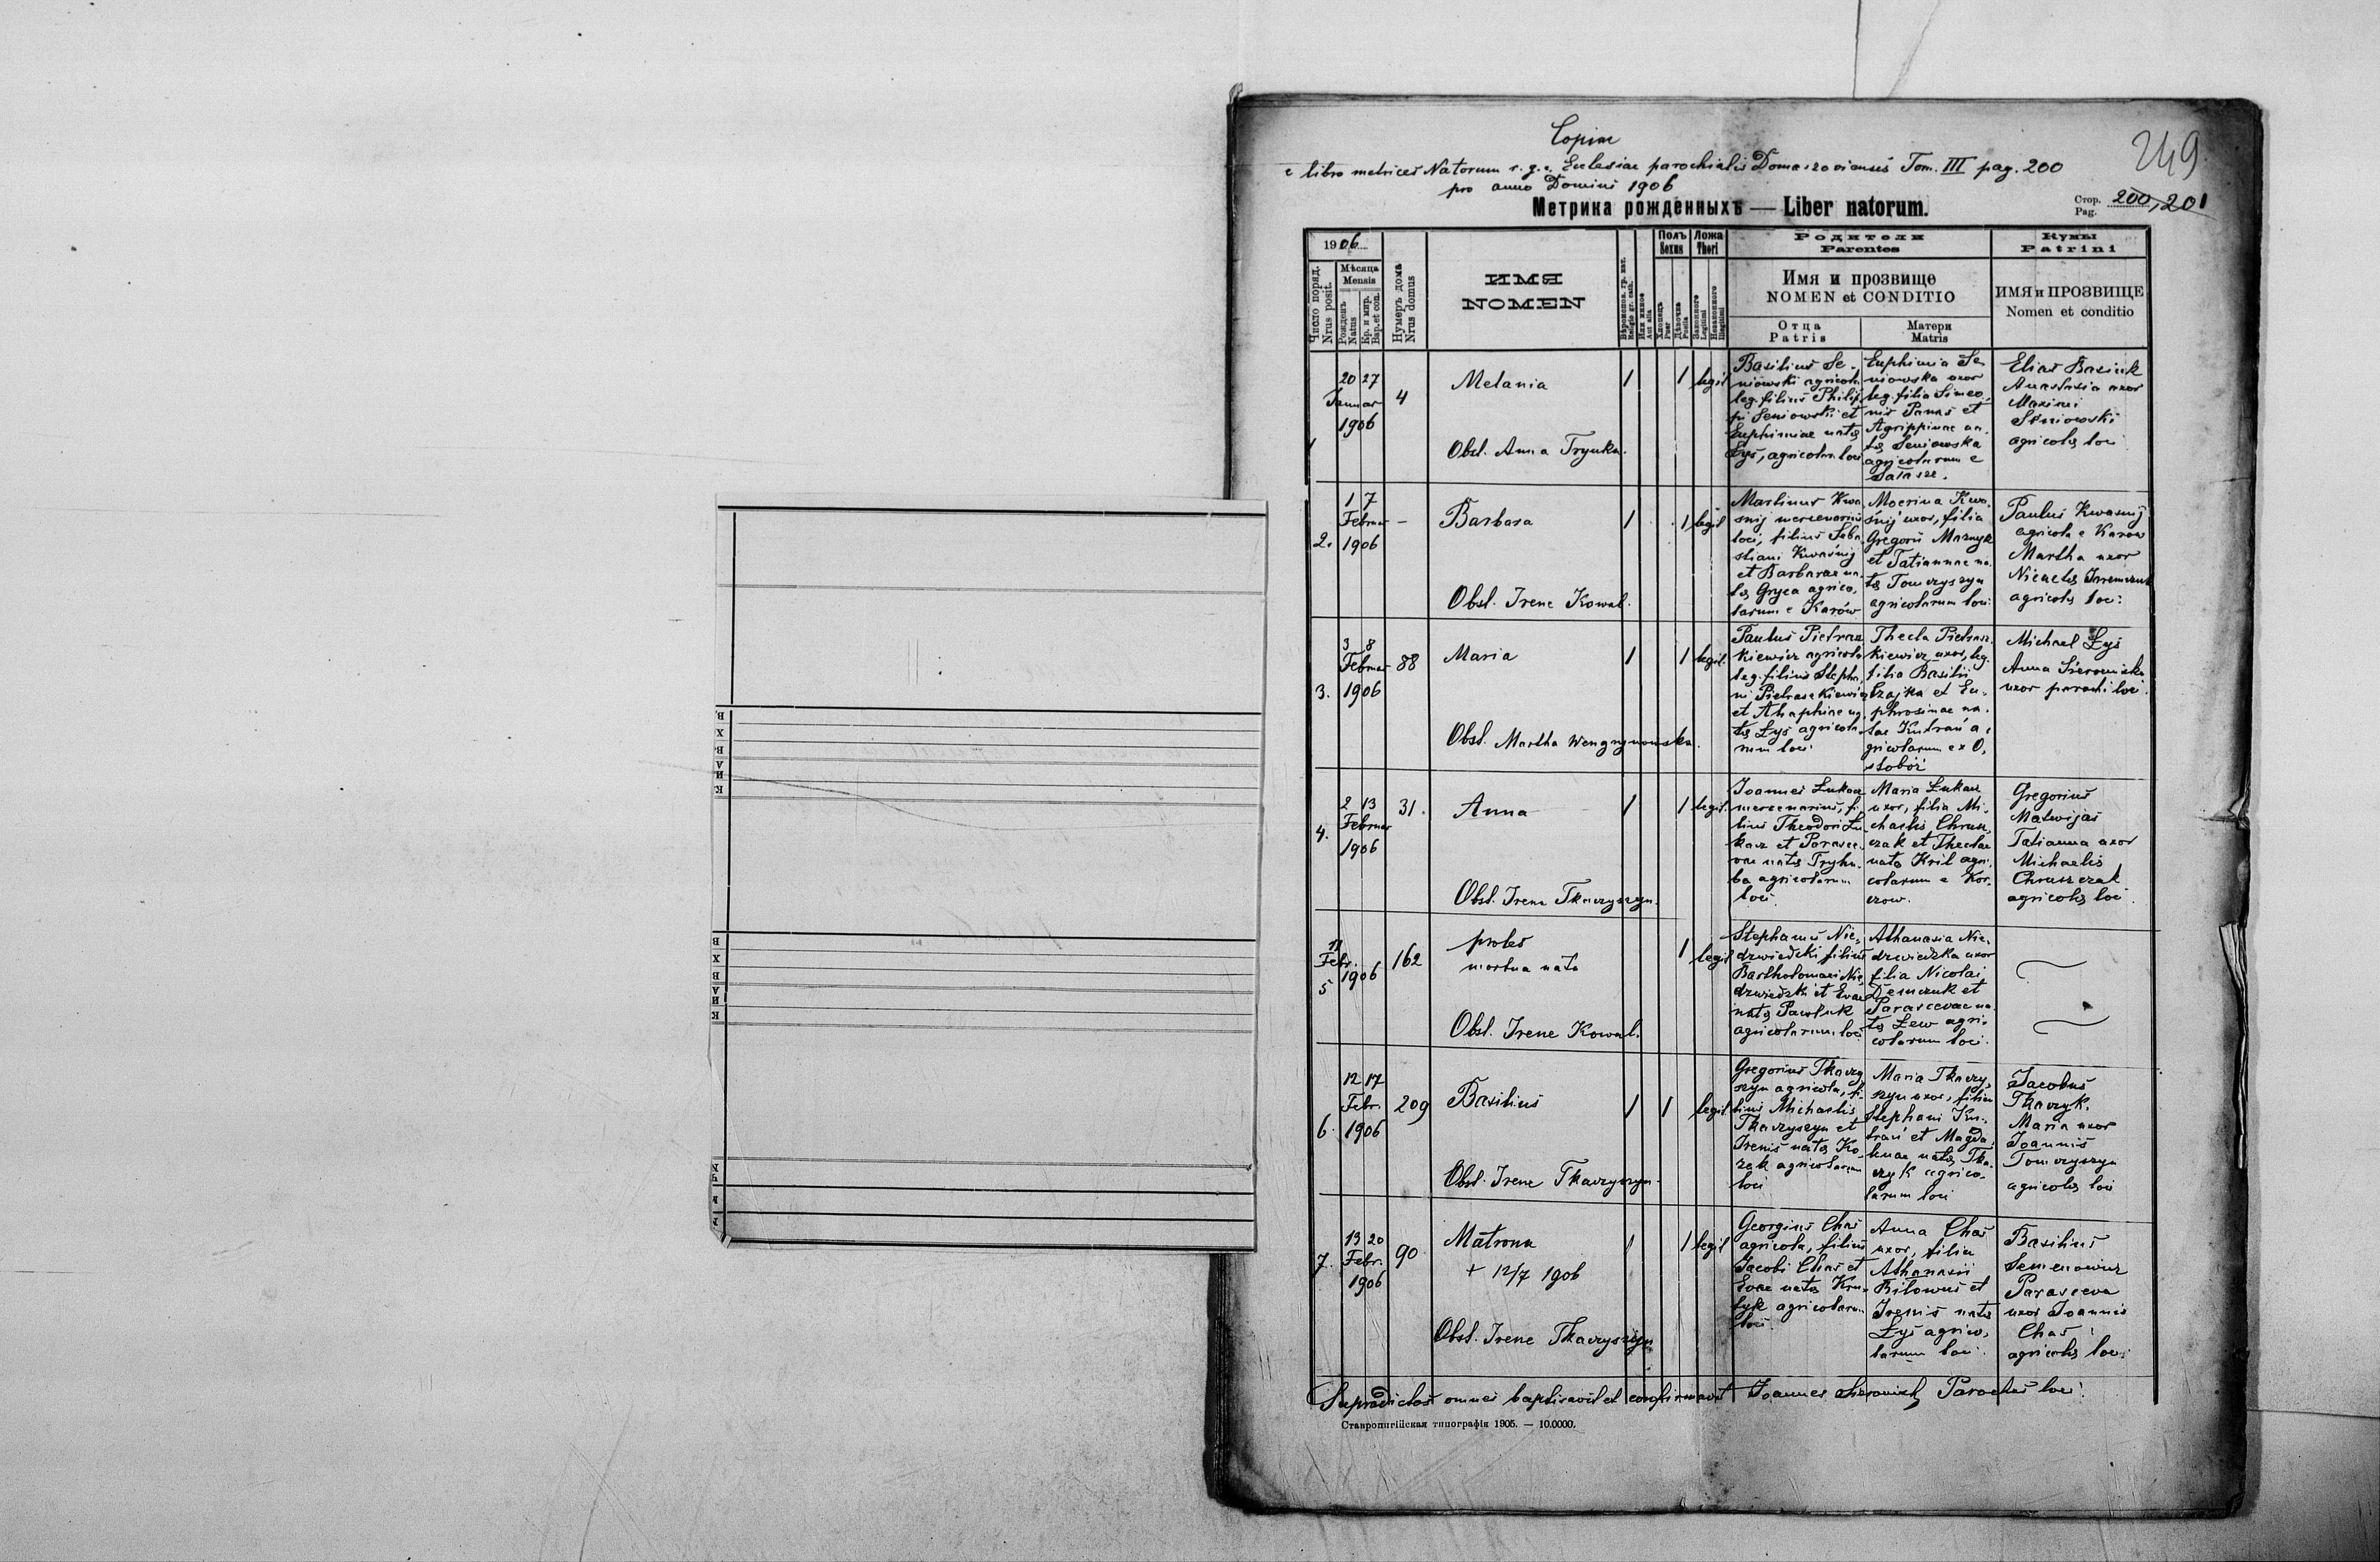 Copiae
e libro metrices Natorum r. g. c. Ecclesiae parochialis Domaszoviensis Tom. III pag. 200
pro anno Domini 1906
249
Метрика рожденныхъ — Liber natorum.
Стор.
Pag. 200, 201
1906
Число поряд.
Nrus posit.
Мѣсяца
Mensis
Рожденъ
Natus
Кр. и мир.
Bap. et con.
Нумеръ дома
Nrus domus
ИМЯ
NOMEN
Полъ
Sexus
Хлопець
Puer
Дѣвочка
Puella
Ложа
Thori
Законного
Legitimi
Незаконного
Illegitimi
Родители
Parentes
Имя и прозвище
NOMEN et CONDITIO
Отца
Patris
Матери
Matris
Кумы
Patrini
ИМЯ и ПРОЗВИЩЕ
Nomen et conditio
1
20 27
Januar
1906
4
Melania
Obst. Anna Tryuka.
1 1 legit
Basilius Se-
niowski agricola
leg. filius Philip
pi Seniowski et
Euphimiae nata
Łyś, agricolar. loci
Euphimia Se-
niowska uxor
leg. filia Simeo-
nis Panas et
Agrippinae na-
ta Seniowska
agricolarum e
Salasze.
Elias Basiuk
Anastasia uxor
Maximi
Seniowski
agricola loci
2.
1 7
Februar
1906
-
Barbara
Obst. Irene Kowal.
1 1 legit
Martinus Kwa
śnij mercenarius
loci, filius Seba
stiani Kwaśnij
et Barbarae na
ta Gryca agrico-
larum e Karów
Macrina Kwa
śnij uxor, filia
Gregorii Maznyk
et Tatiannae na
ta Tomczyszyn
agricolarum loci
Paulus Kwasnij
agricola e Karow
Martha uxor
Nicetae Jaremczuk
agricola loci
3.
3 8
Februar
1906
88
Maria
Obst. Martha Wengrynowska.
1 1 legit.
Paulus Pietrasz
kiewicz agricola
leg. filius Stepha
ni Pietraszkiewicz
et Ahaphiae na
ta Łyś agricola
rum loci
Thecla Pietrasz
kiewicz uxor, leg.
filia Basilii
Czajka et Eu-
phrosinae na-
tae Kutrań a-
gricolarum ex O-
stobóż
Michael Łyś
Anna Sieromiska
uxor parochi loci.
4.
2 13
Februar
1906
31.
Anna
Obst. Irene Tkaczyszyn.
1 1 legit.
Joannes Łukacz
mercenarius, fi-
lius Theodori Łu
kacz et Parasce-
vae nata Tryhu-
ba agricolarum
loci.
Maria Łukacz
uxor, filia Mi-
chaelis Chrusz
czak et Theclae
nata Kril agri-
colarum e Kor-
czow.
Gregorius
Matwijas
Tatianna uxor
Michaelis
Chruszczak
agricola loci.
5
11
Febr.
1906
162
proles
mortua nata
Obst. Irene Kowal.
1 legit
Stephanus Nie-
dzwiedzki filius
Bartholomaei Nie
dzwiedzki et Evae
nata Pawluk
agricolarum loci
Athanasia Nie-
dzwiedzka uxor
filia Nicolai
Demczuk et
Parascevae na
ta Łew agri-
colarum loci.
6.
12 17
Febr.
1906
209
Basilius
Obst. Irene Tkaczyszyn.
1 1 legit
Gregorius Tkaczy
szyn agricola, fi-
lius Michaelis
Tkaczyszyn et
Irenis nata Ko-
zak agricolarum
loci
Maria Tkaczy-
szyn uxor, filia
Stephani Ku-
trań et Magda-
lenae nata Tka-
czyk agrico-
larum loci
Jacobus
Tkaczyk.
Maria uxor
Joannis
Tomczyszyn
agricola loci
7.
13 20
Febr.
1906
90
Matrona
+ 12/7 1906
Obst. Irene Tkaczyszyn
1 1 legit
Georgius Chas
agricola, filius
Jacobi Chas et
Evae nata Kru-
łyk agricolarum
loci.
Anna Chas
uxor, filia
Athanasii
Biłowus et
Irenis nata
Łyś agrico-
larum loci.
Basilius
Semenowicz
Parasceva
uxor Joannis
Chas
agricola loci
Supradictos omnes baptisavit et confirmavit Joannes Parochus loci.
Ставропигійская типографія 1905. — 10.0000.